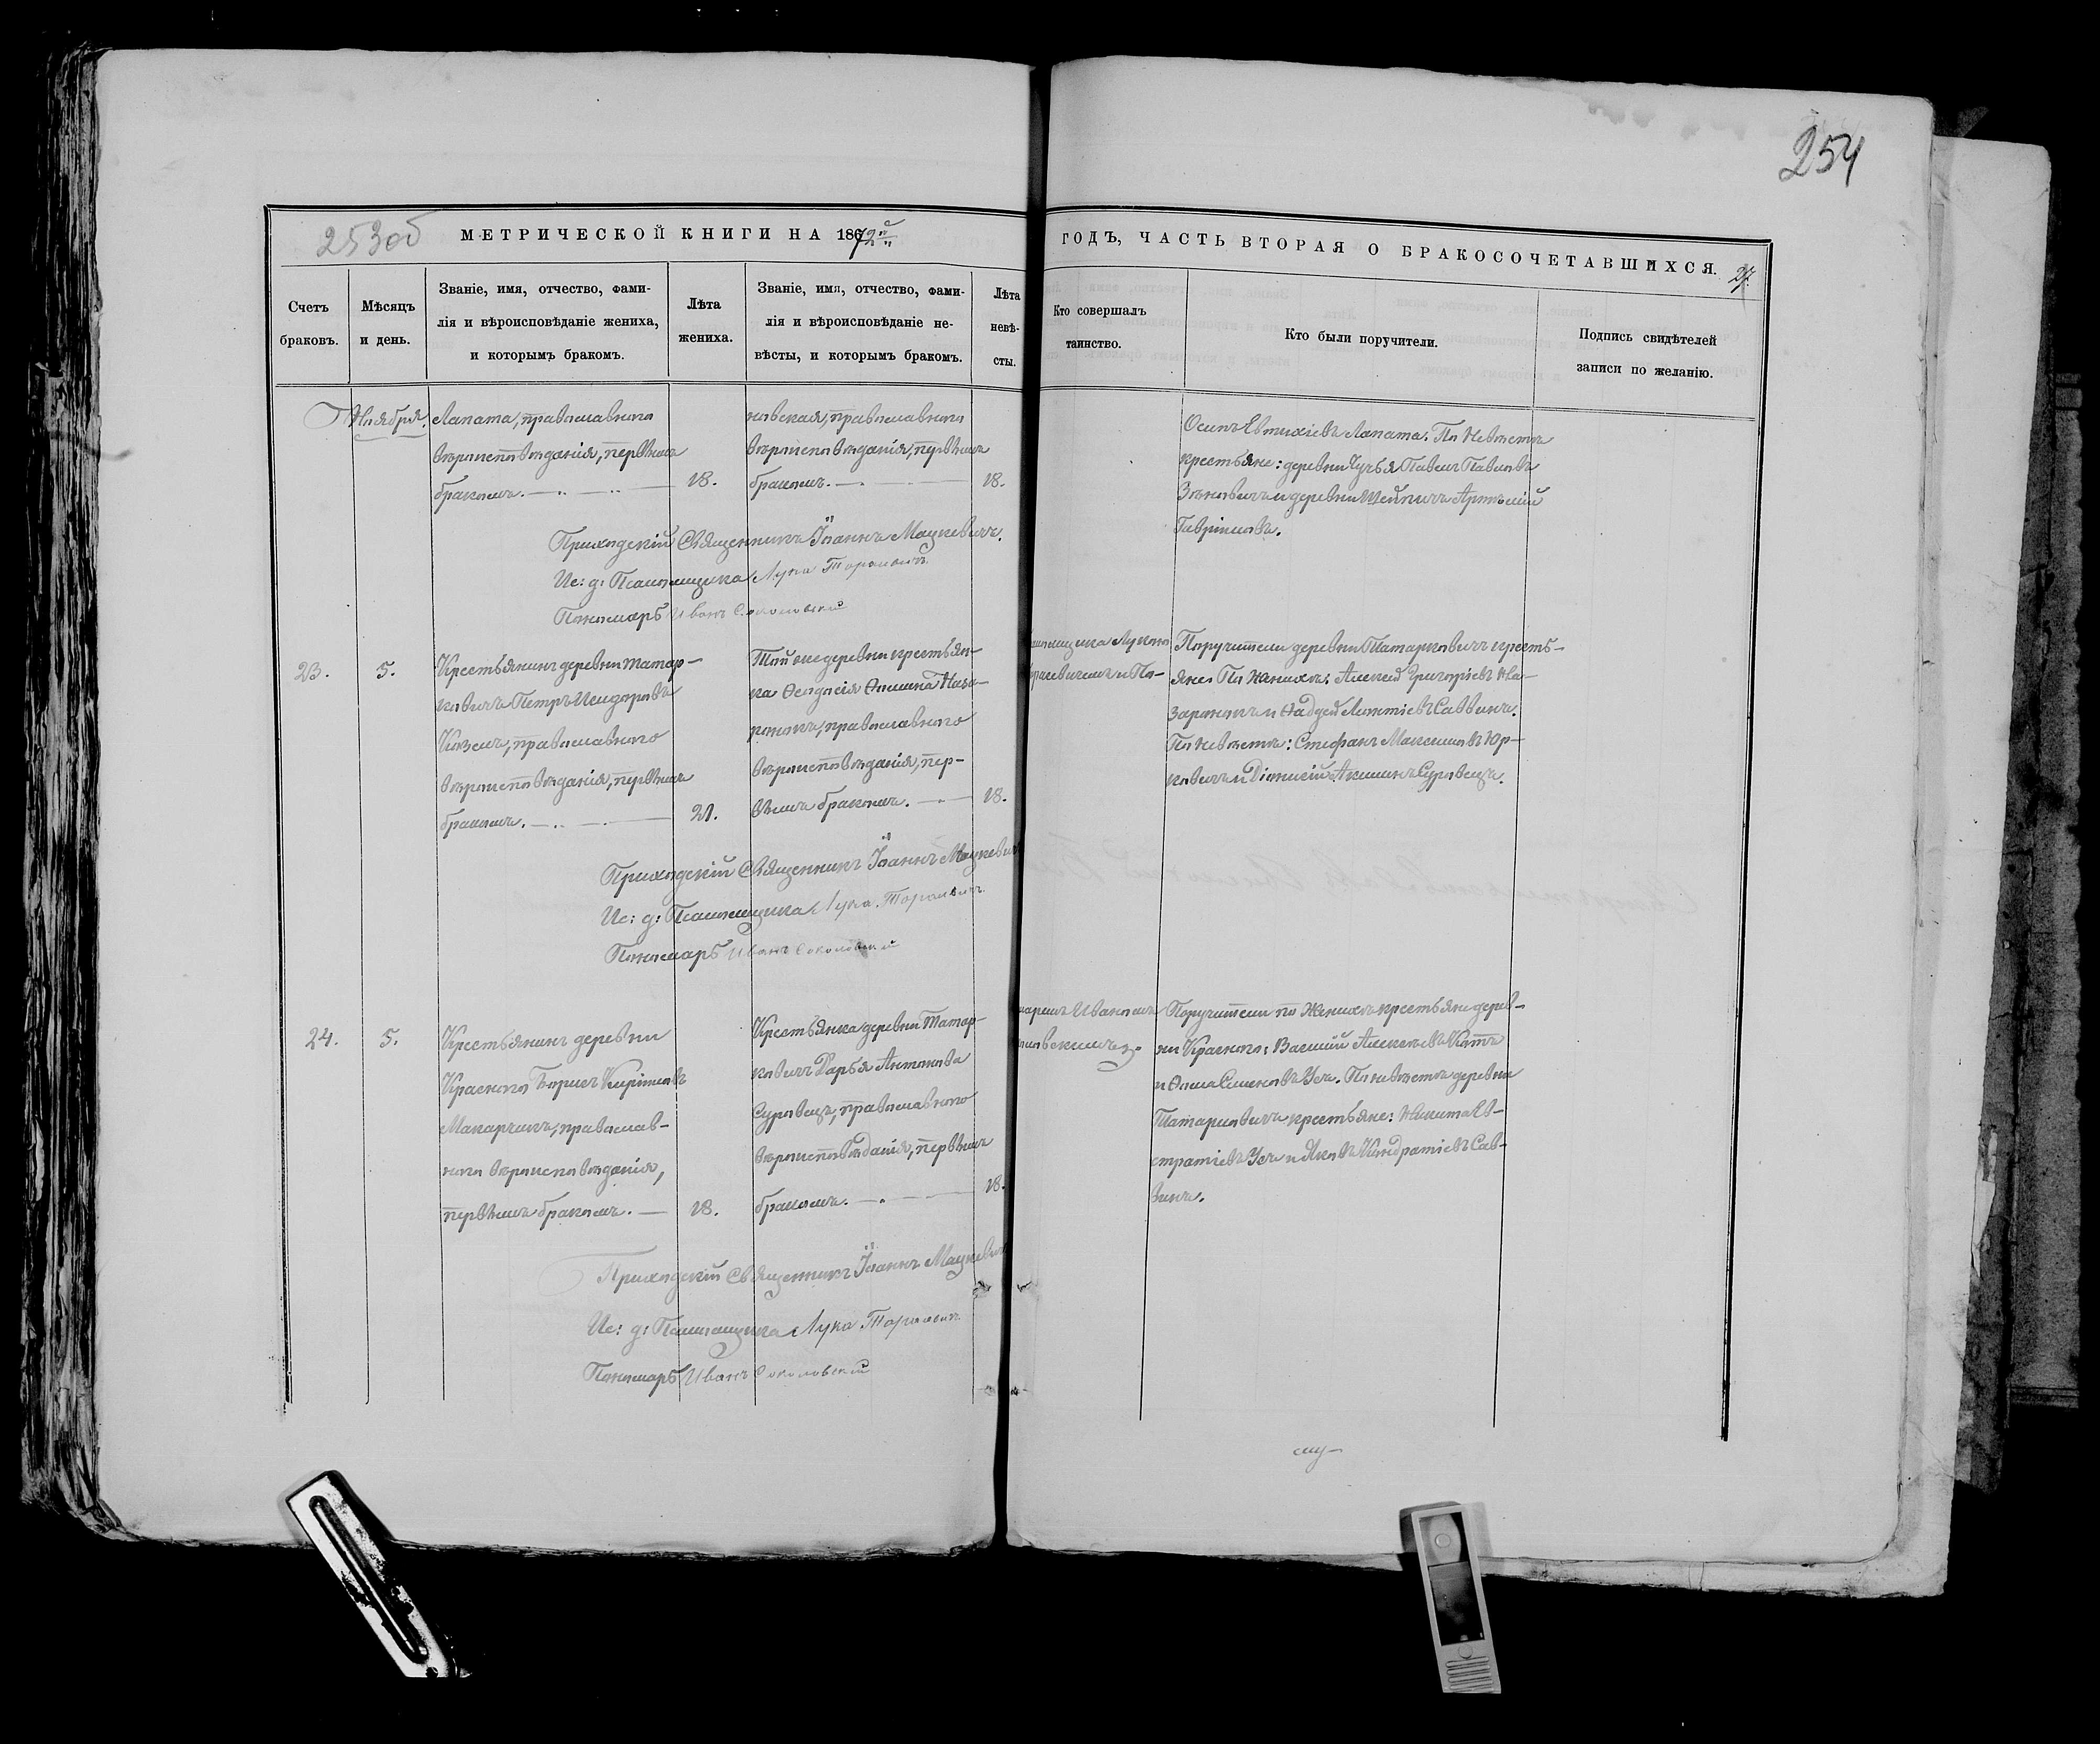 254
253об
МЕТРИЧЕСКОЙ КНИГИ НА 1872й
ГОДЪ, ЧАСТЬ ВТОРАЯ О БРАКОСОЧЕТАВШИХСЯ.
27.
Счетъ
браковъ.
Мѣсяцъ
и день.
Званіе, имя, отчество, фами-
лія и вѣроисповѣданіе жениха,
и которымъ бракомъ.
Лѣта
жениха.
Званіе, имя, отчество, фами-
лія и вѣроисповѣданіе не-
вѣсты, и которымъ бракомъ.
Лѣта
невѣ-
сты.
Кто совершалъ
таинство.
Кто были поручители.
Подпись свидѣтелей
записи по желанію.
Ноября.
Лапата, православнаго
вѣроисповѣданія, первымъ
бракомъ.
18.
новская, православнаго
вѣроисповѣданія, первымъ
бракомъ.
18.
Осипъ Евтихіевъ Лапата. По невѣстѣ
крестьяне: деревни Чучья Павелъ Павловъ
и деревни Артемій
Гавріиловъ.
Приходскій Священникъ Іоаннъ Мацкевичъ.
Ис: д: Псаломщика Лука
Пономарь Иванъ Соколовскій
23.
5.
Крестьянинъ деревни Татар-
ковичъ Петръ Исидоровъ
Козелъ, православнаго
вѣроисповѣданія, первымъ
бракомъ.
21.
Той же деревни крестьян-
ка Ѳеодосія Ѳомина Наза-
ронокъ, православнаго
вѣроисповѣданія, пер-
вымъ бракомъ.
18.
Поручители деревни Татарковичъ кресть-
яне: По женихѣ: Алексей Григоріевъ На-
заронокъ и Ѳадей Савинъ.
По невѣстѣ: Стефанъ Максимовъ Юр-
ковичъ и Діонисій Акиминъ Суровецъ.
Приходскій Священникъ Іоаннъ Мацкевичъ
Ис: д: Псаломщика Лука
Пономарь Иванъ Соколовскій
24.
5.
Крестьянинъ деревни
Краснаго Борисъ Кириловъ
Макарчикъ, православ-
наго вѣроисповѣданія,
первымъ бракомъ.
18.
Крестьянка деревни Татар-
ковичъ Дарья Антонова
Суровецъ, православнаго
вѣроисповѣданія, первымъ
бракомъ.
18.
Поручители по женихѣ крестьяне дерев-
ни Краснаго: Василій Алексѣевъ
и Ѳома Семеновъ Усъ. По невѣстѣ деревни
Татарковичъ крестьяне: Никита Ев-
стратіевъ Усъ и Яковъ Кондратіевъ Сав-
винъ.
Приходскій Священникъ Іоаннъ Мацкевичъ
Ис: д: Псаломщика Лука
Пономарь Иванъ Соколовскій